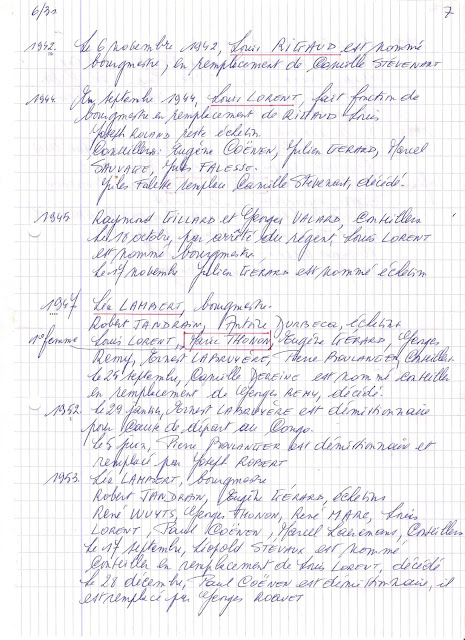 6/31 7
1942. Le 6 novembre 1942, Louis RITTAUD est nommé
bourgmestre, en remplacement de Camille STEVENART
1944. En septembre 1944, Louis LORENT, fait fonction de
bourgmestre en remplacement de RITTAUD Louis
Joseph ROLAND reste échevin
Conseillers: Eugène COËNEN, Julien GERARD, Marcel
SAUVAGE, Jules FALESSE.
Jules Falesse remplace Camille Stevenart, décédé.
1945 Raymond GILLARD et Georges VALARD, Conseillers
Le 18 octobre, par arrêté du régent, Louis LORENT
est nommé bourgmestre,
Le 17 novembre Julien GERARD est nommé échevin
1947 Léa LAMBERT, bourgmestre.
Robert TANDRAIN, Antoine DURBECQ, échevins
1e femme Louis LORENT, Marie THONON, Eugène GERARD, Georges
Remy, Ernest LABRUYERE, Pierre BOULANGER, Conseillers.
Le 25 septembre, Camille DEREINE est nommé conseiller
en remplacement de Georges REMY, décédé.
1952. Le 29 janvier, Ernest LABRUYÈRE est démissionnaire
pour cause de départ au Congo.
Le 5 juin, Pierre BOULANGER est démissionnaire et
remplacé par Joseph ROBERT
1953. Léa LAMBERT, bourgmestre
Robert TANDRAIN, Eugène GÉRARD, échevins
René WUYTS, Georges THONON, René MARC, Louis
LORENT, Paul COËNEN, Marcel Lauremans, Conseillers
Le 17 septembre, Léopold STEVAUX est nommé
Conseiller en remplacement de Louis LORENT, décédé
Le 28 décembre, Paul COËNEN est démissionnaire, il
est remplacé par Georges ROQUET